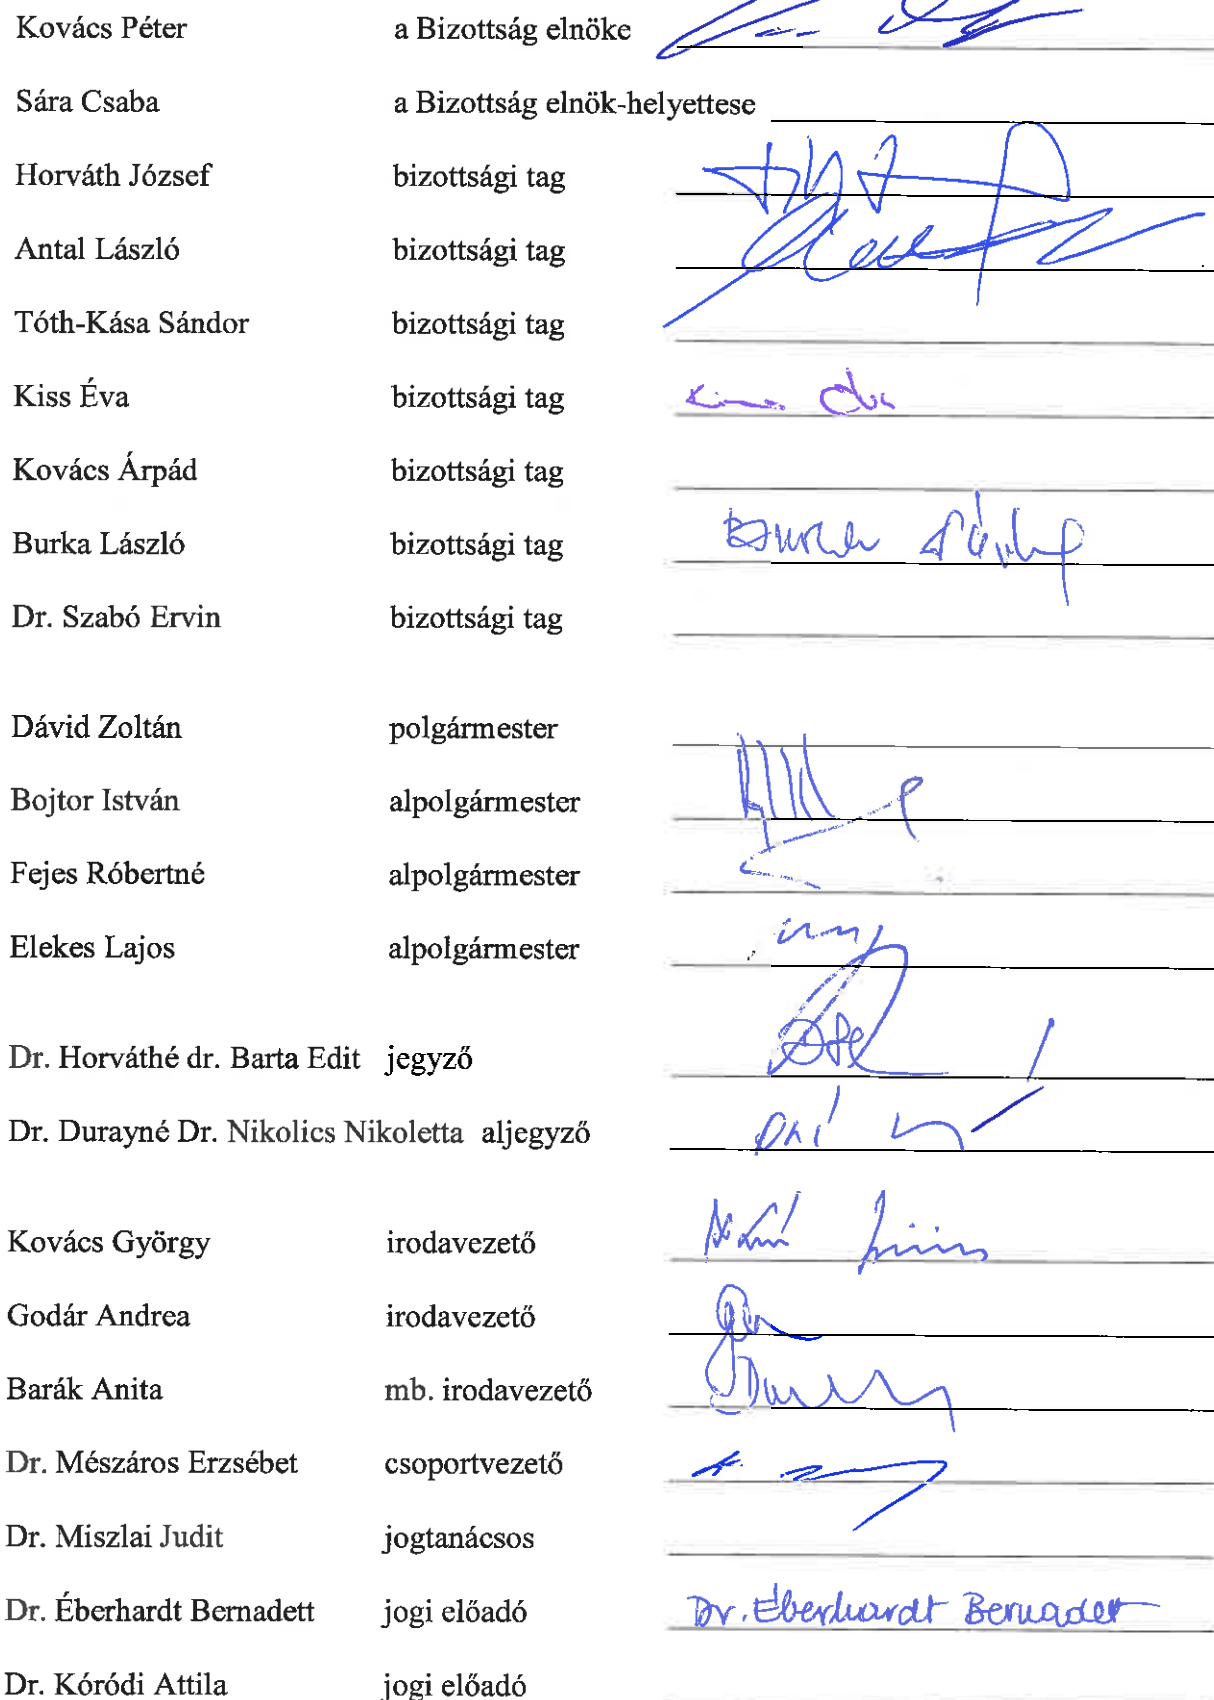 Kovács Péter a Bizottság elnöke
Sára Csaba a Bizottság elnök-helyettese
Horváth József bizottsági tag
Antal László bizottsági tag
Tóth-Kása Sándor bizottsági tag
Kiss Éva bizottsági tag Kiss Éva
Kovács Árpád bizottsági tag
Burka László bizottsági tag Burka László
Dr. Szabó Ervin bizottsági tag
Dávid Zoltán polgármester
Bojtor István alpolgármester
Fejes Róbertné alpolgármester
Elekes Lajos alpolgármester
Dr. Horváthé dr. Barta Edit jegyző
Dr. Durayné Dr. Nikolics Nikoletta aljegyző
Kovács György irodavezető
Godár Andrea irodavezető
Barák Anita mb. irodavezető
Dr. Mészáros Erzsébet csoportvezető
Dr. Miszlai Judit jogtanácsos
Dr. Éberhardt Bernadett jogi előadó Dr. Éberhardt Bernadett
Dr. Kóródi Attila jogi előadó